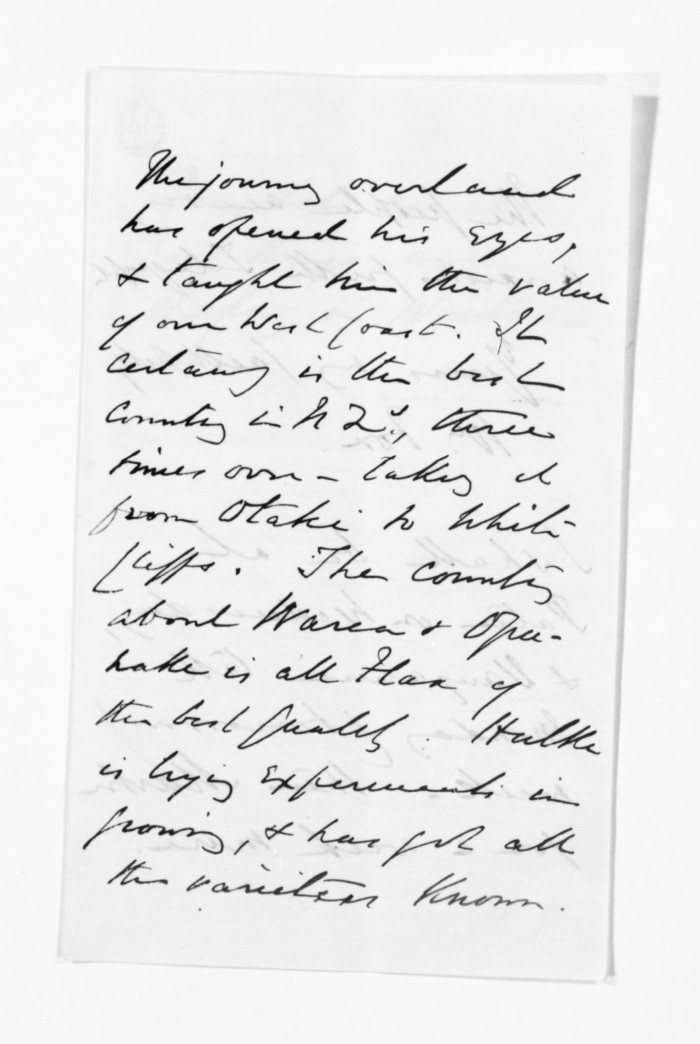 The journey overland
has opened his eyes,
& taught him the value
of our West Coast. It
certainly is the best
country in N Zd, three
times over – taking it
from Otaki to White
Cliffs. The country
about Warea & Opu-
nake is all Flax of
the best quality. Hulke
is trying experiments in
growing, & has got all
the varieties known.